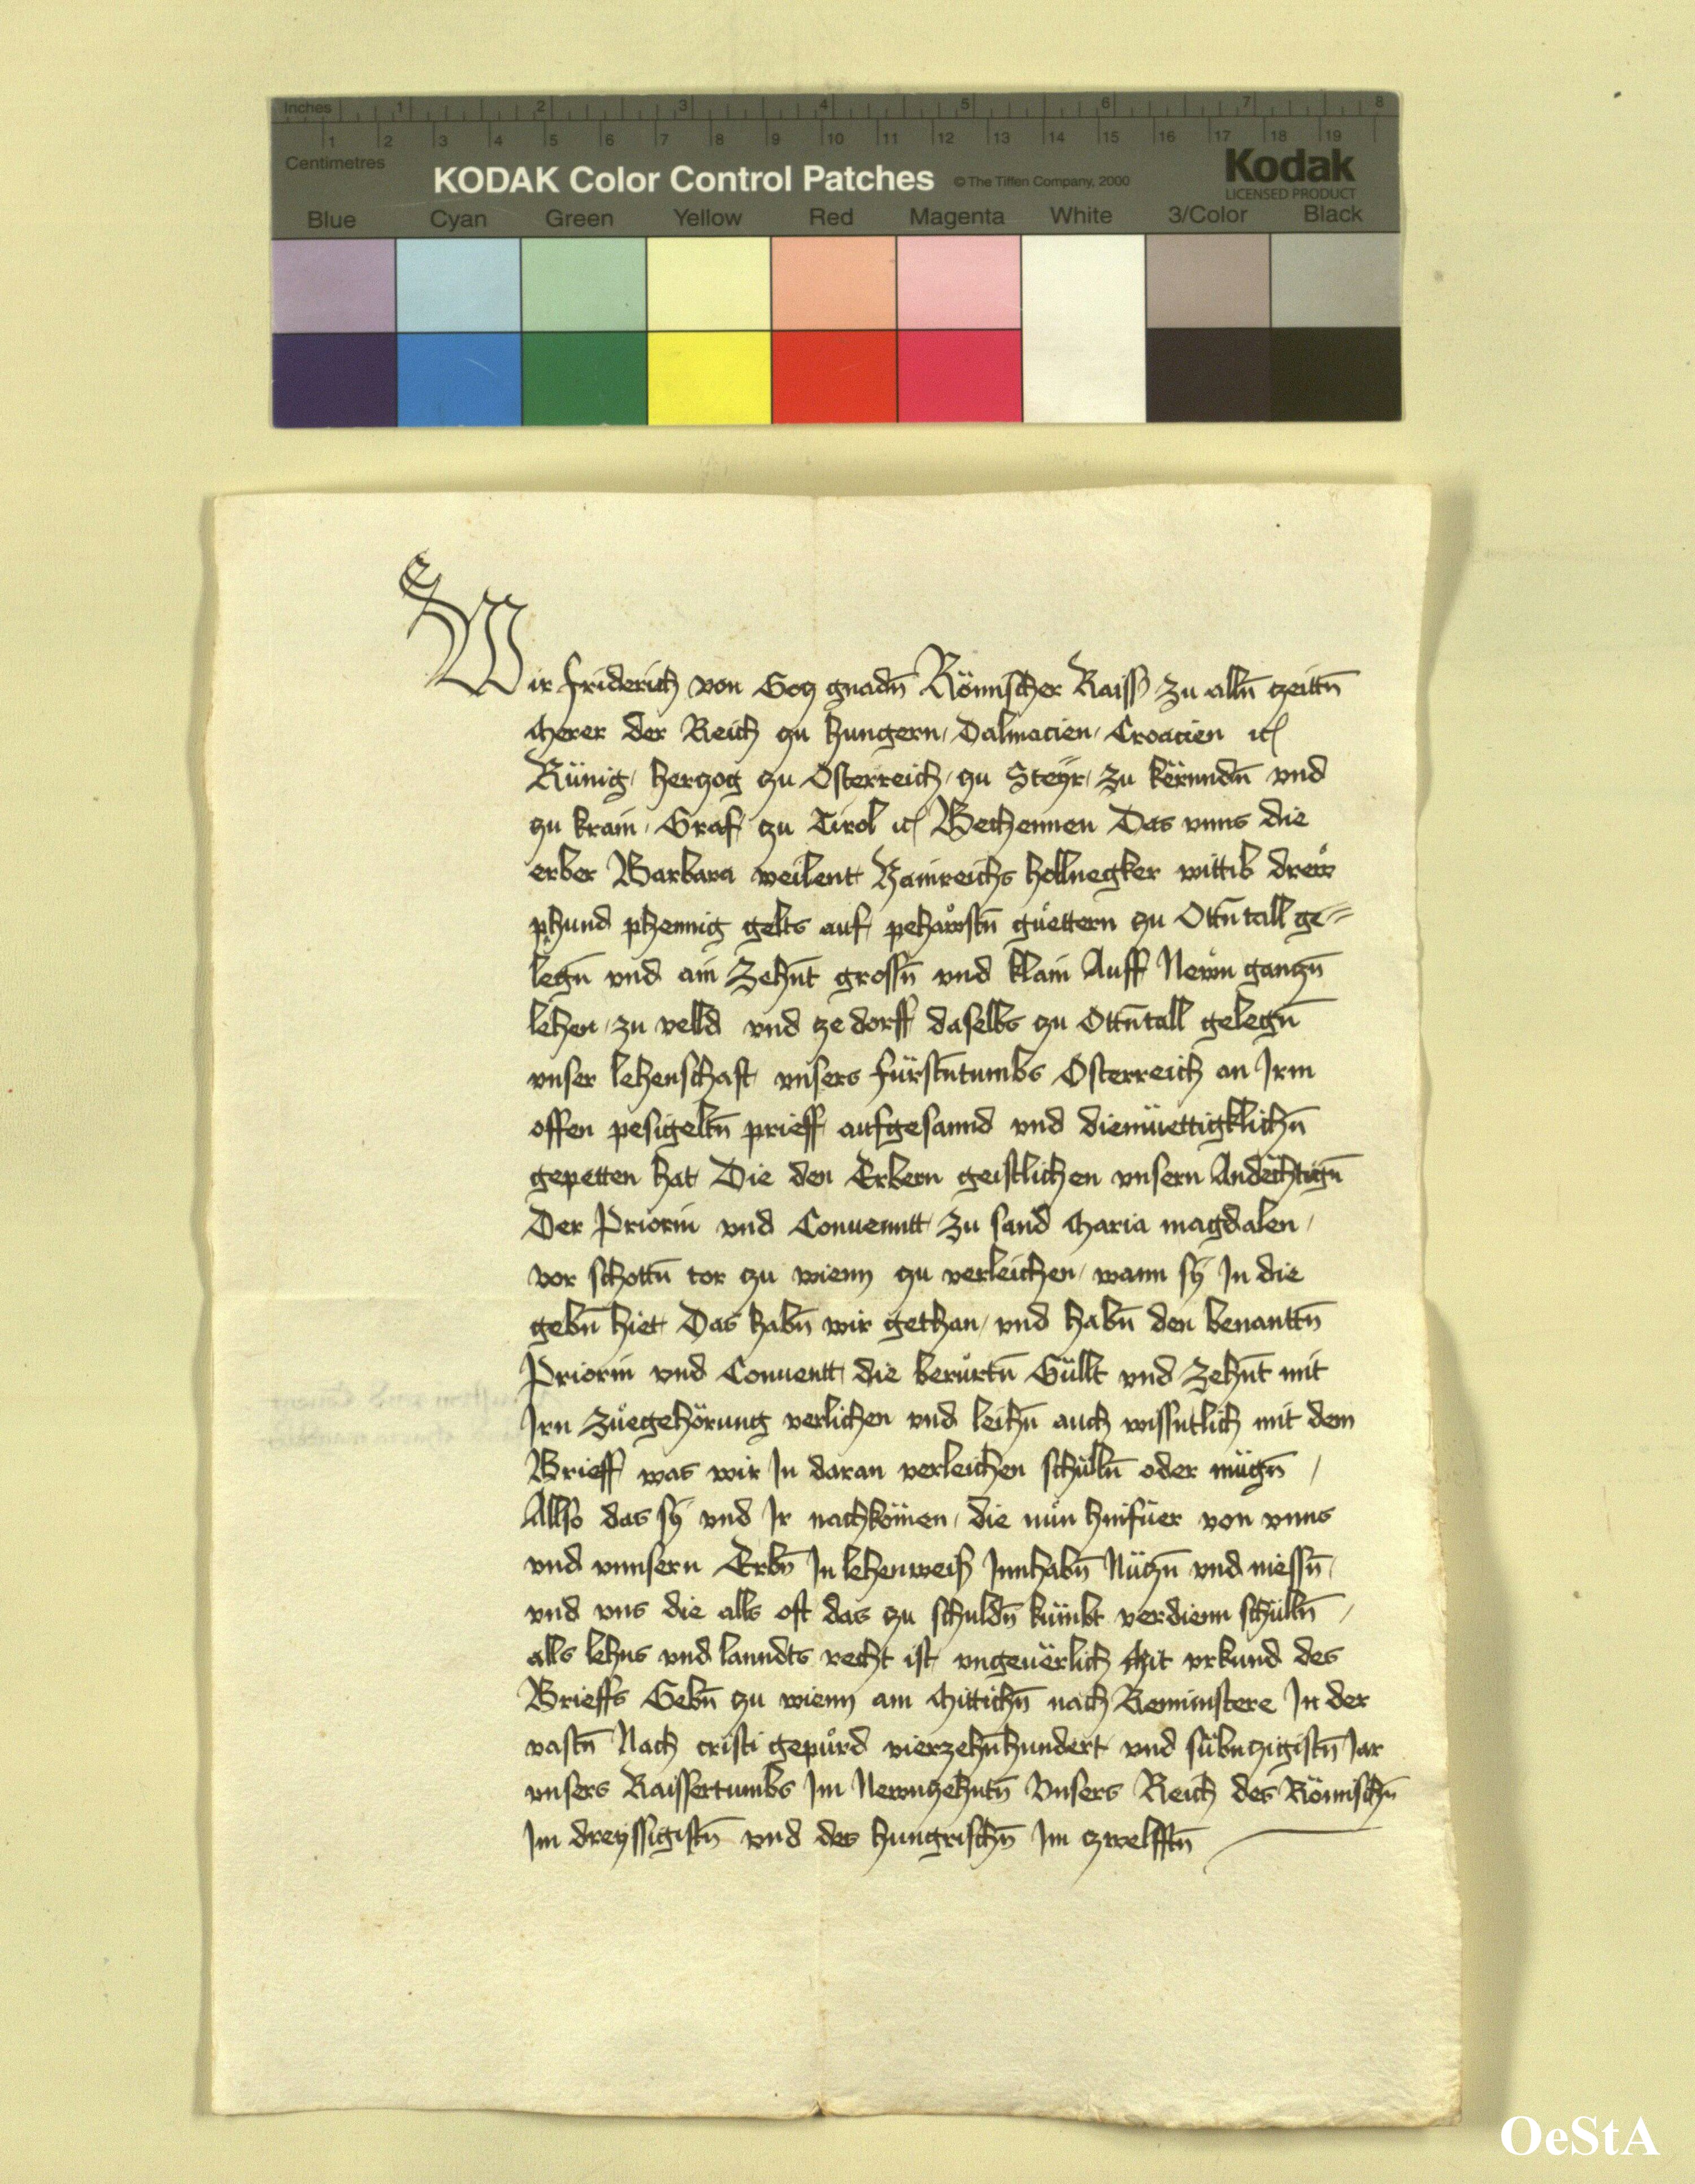 Inches 1 2 3 4 5 6 7 8
1 2 3 4 5 6 7 8 9 10 11 12 13 14 15 16 17 18 19
Centimetres
KODAK Color Control Patches © The Tiffen Company, 2000 Kodak
LICENSED PRODUCT
Blue Cyan Green Yellow Red Magenta White 3/Color Black
Wir Friderich von Gots gnadn̄ Römischer Kaiser zu alln̄ tzeittn̄
Merer der Reich zu Hungern, Dalmacien, Croacien etc
Künig, Hertzog zu Osterreich, zu Steÿr, zu Kërnndn̄ vnd
zu Krain, Graf zu Tirol etc Bechennen Das vnns die
erber Barbara weilent Hainreichs Hollnegker wittib drew
phund phennig gelts auf pehawstn̄ guettern zu Ottn̄tall ge=
legn̄ vnd ain Zehn̄t grossn̄ vnd klain Auff Newn gantzn̄
lehen, zu velld vnd ze dorff daselbs zu Ottn̄tall gelegn̄
vnser lehenschaft vnsers fürstn̄tumbs Osterreich an Irm
offen pesigeltn̄ prieff aufgesannd vnd diemüettigklichn̄
gepetten hat Die den Erbern geistlichen vnsern Andëchtign̄
Der Priorin vnd Conuenntt zu sand Maria magdalen,
vor schottn̄ tor zu wienn zu verleichen, wann sÿ In die
gebn̄ hiet Das habn̄ wir gethan, vnd habn̄ den benanttn̄
Priorin vnd Conuentt die berürtn̄ Güllt vnd Zehn̄t mit
Irn Zuegehörung verlichen vnd leihn̄ auch wissntlich mit dem
Brieff was wir In daran verleichen schülln̄ oder mügn̄,
Allso das sÿ vnd Ir nachkömen, die nun hinfüer von vnns
vnd vnnsern Erbn̄ In lehenweis Innhabn̄ Nützn̄ vnd niessn̄,
vnd vns die alls oft das zu schuldn̄ kümbt verdienn schülln̄,
alls lehns vnd lanndts recht ist vngeuërlich Mit vrkund des
Brieffs Gebn̄ zu wienn am Mittichn̄ nach Reministere In der
vastn̄ Nach cristi gepurd vierzehn̄hundert vnd sübntzigistn̄ Jar
vnsers Kaissertumbs Im Newntzehntn̄ Vnsers Reich des Römischn̄
Im dreyssigistn̄ vnd des hungrischn̄ Im zwelfftn̄
OeStA